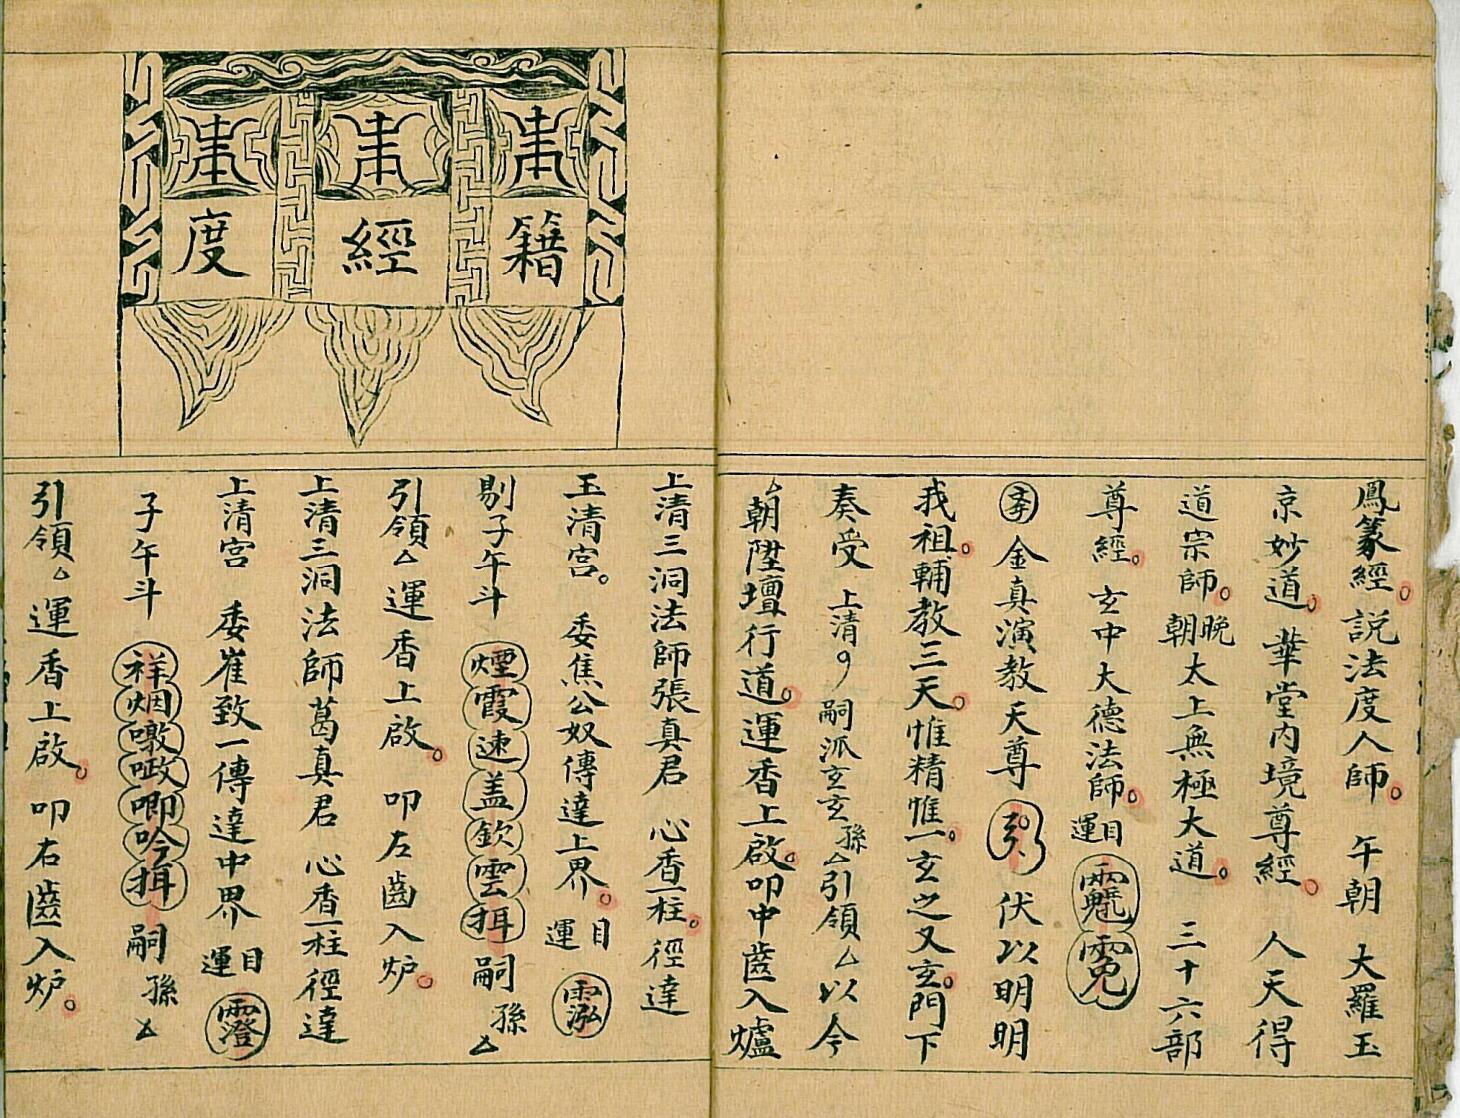 鳳篆經。說法度人師。午朝 大羅玉
京妙道。華堂内境尊經。人天得
道宗師。晚朝太上無極大道。三十六部
尊經。玄中大德法師。運目
金真演教天尊 伏以明明
我祖。輔教三天。惟精惟一。玄之又玄。門下
奏受 上清 嗣派玄玄孫厶引領厶以今
朝陞壇行道。運香上啟。叩中齒入爐
籍
經
度
上清三洞法師張真君 心香一柱。徑達
玉清宫。委焦公奴傳達上界。運目
剔子午斗 煙霞速盖欽雲揖 嗣孫厶
引領厶運香上啟。叩左齒入炉。
上清三洞法師葛真君 心香一柱徑達
上清宫 委崔致一傳達中界 運目
子午斗 祥烟 唧吟揖 嗣孫厶
引領厶運香上啟。叩右齒入炉。